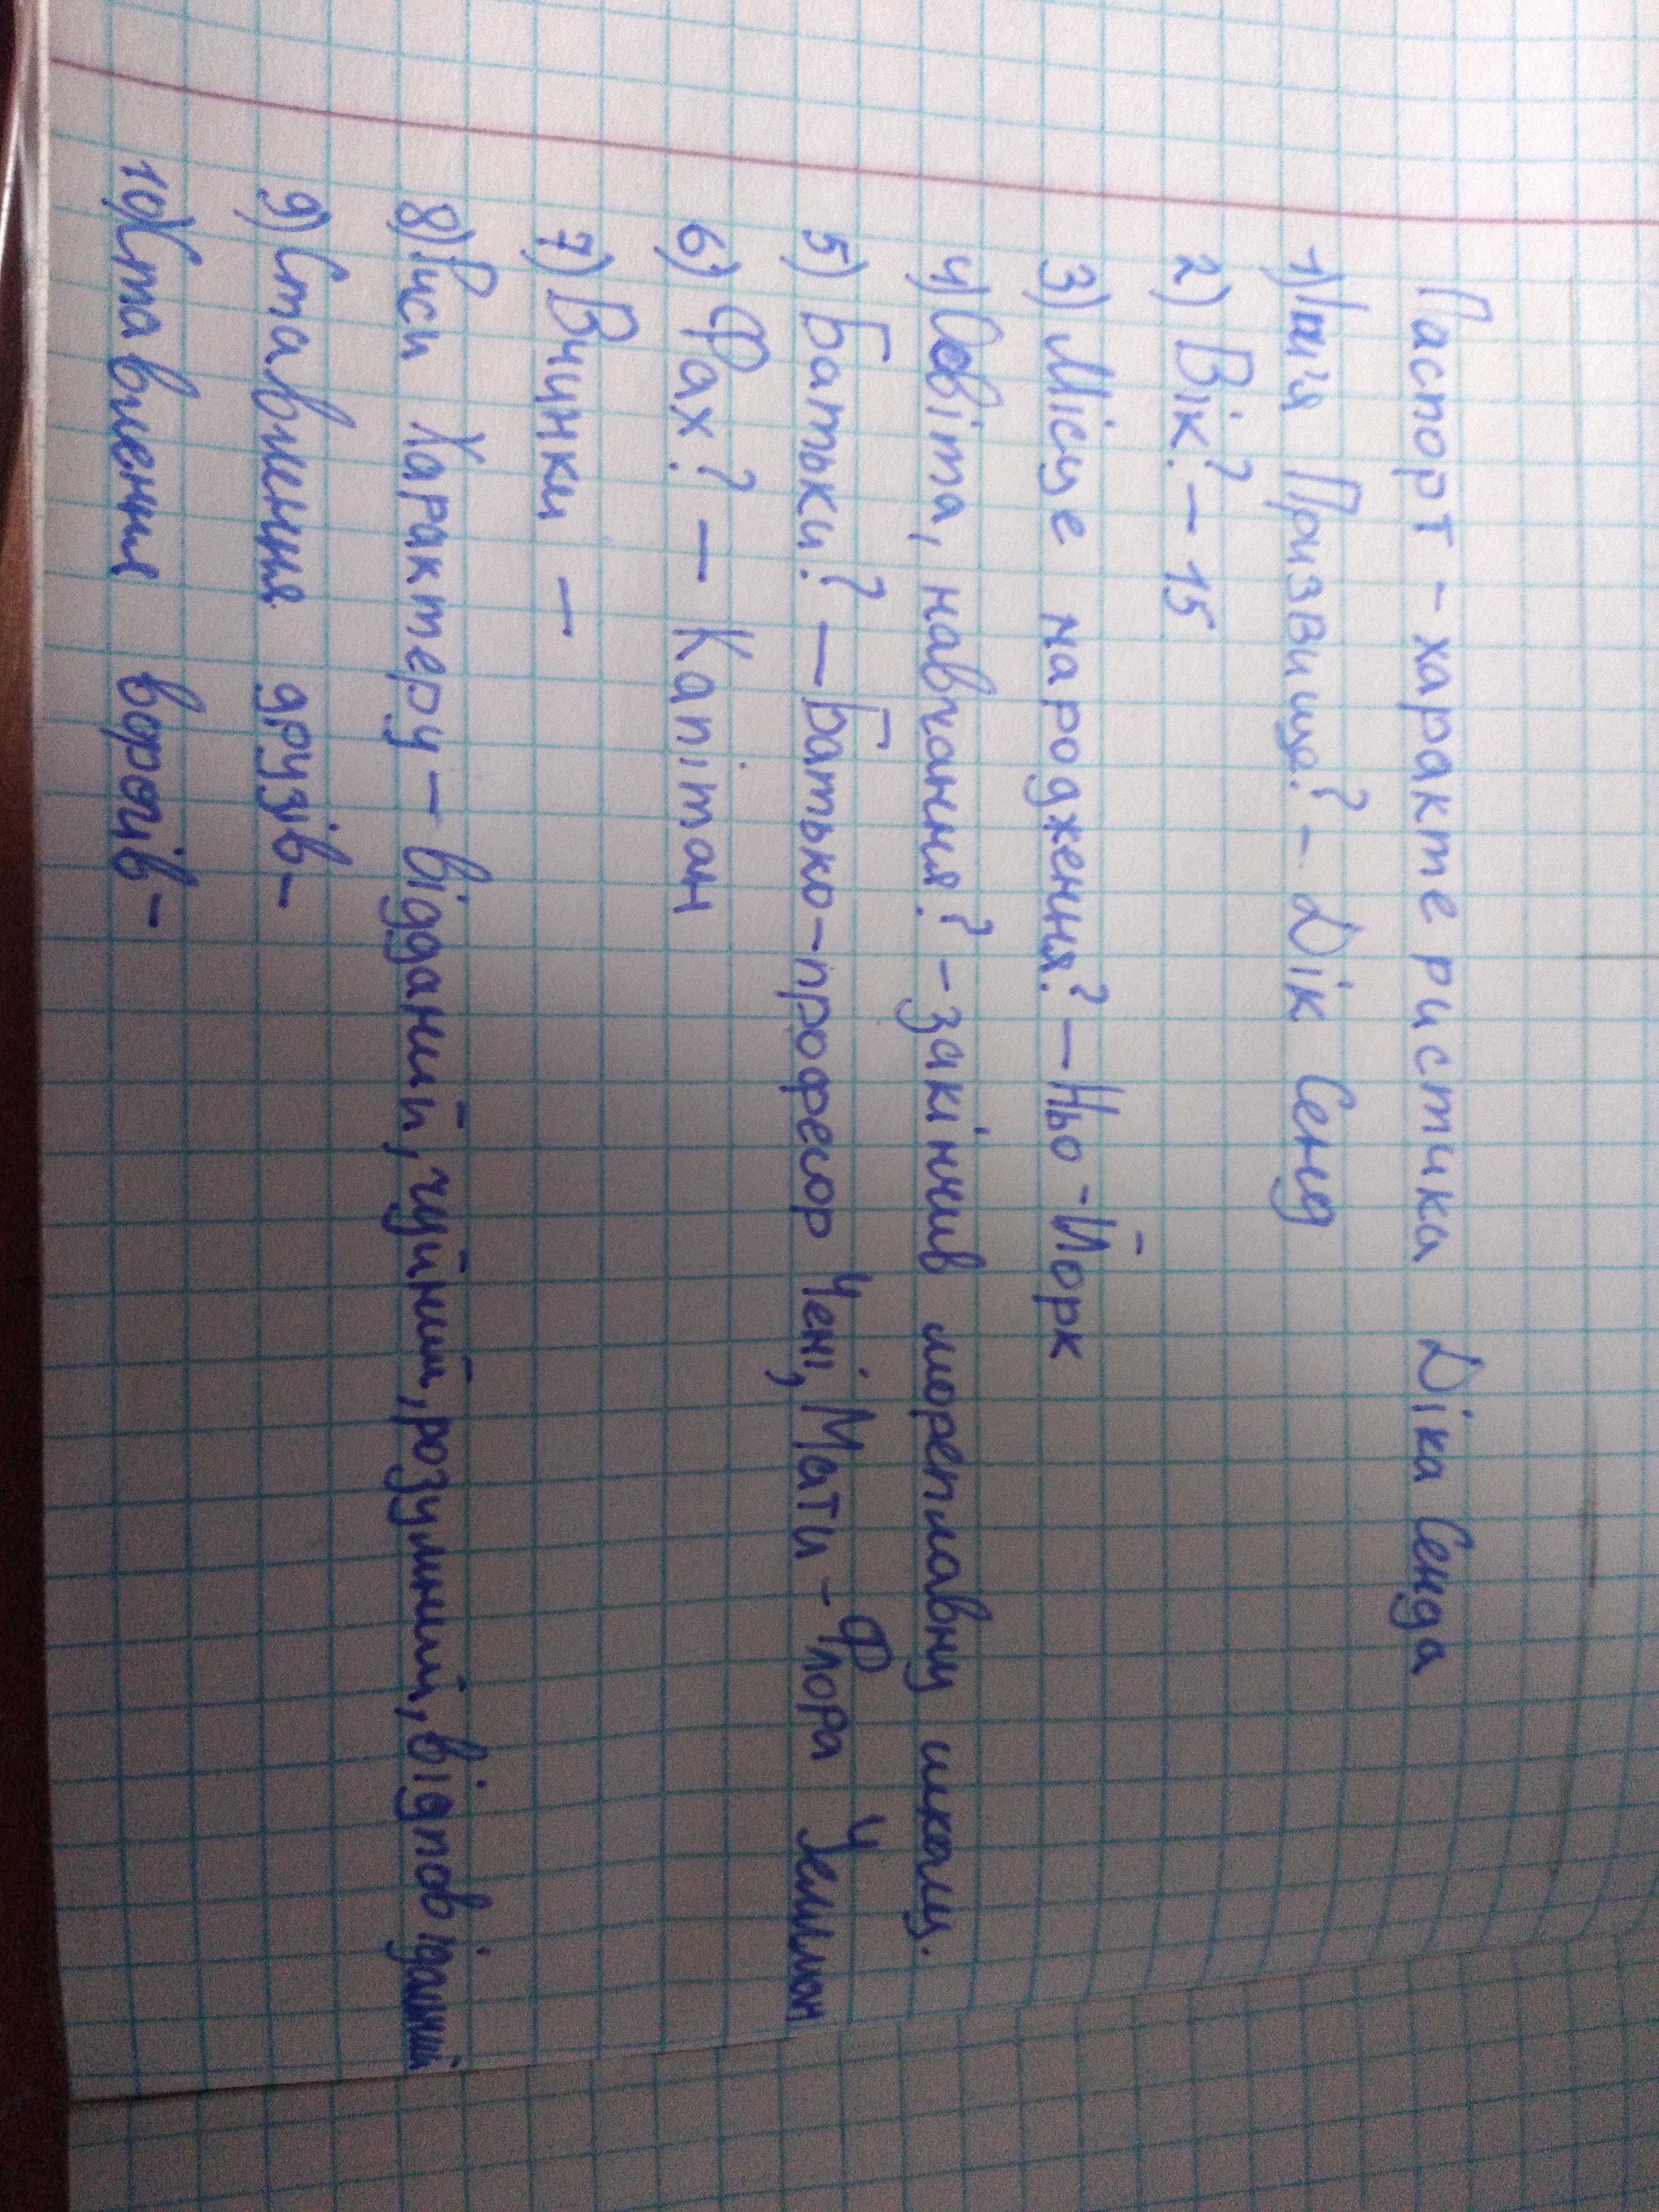 Паспорт - характеристика Діка Сенда
1) Ім'я Призвище? - Дік Сенд
2) Вік? - 15
3) Місце народження? - Нью-Йорк
4) Освіта, навчання? - закінчив мореплавну школу.
5) Батьки? - Батько - професор Чені, Мати - Флора Уеллман
6) Фах? - Капітан
7) Вчинки -
8) Риси Характеру - відданий, чуйний, розумний, відповідалний
9) Ставлення друзів -
10) Ставлення ворогів -